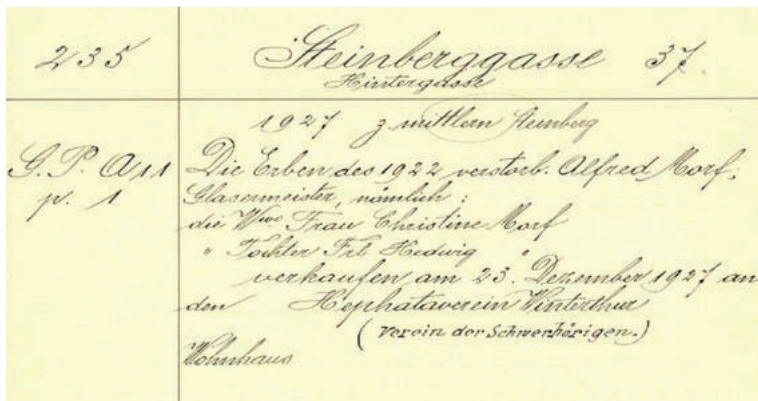 235
Steinberggasse 37.
Hintergasse
1927 z. mittlern Steinberg
G. P. A 11
p. 1
Die Erben des 1922 verstorb. Alfred Morf,
Glasermeister, nämlich:
die Wwe Frau Christine Morf
" Tochter Frl Hedwig "
verkaufen am 23. Dezember 1927 an
den Hephataverein Winterthur
(Verein der Schwerhörigen.)
Wohnhaus